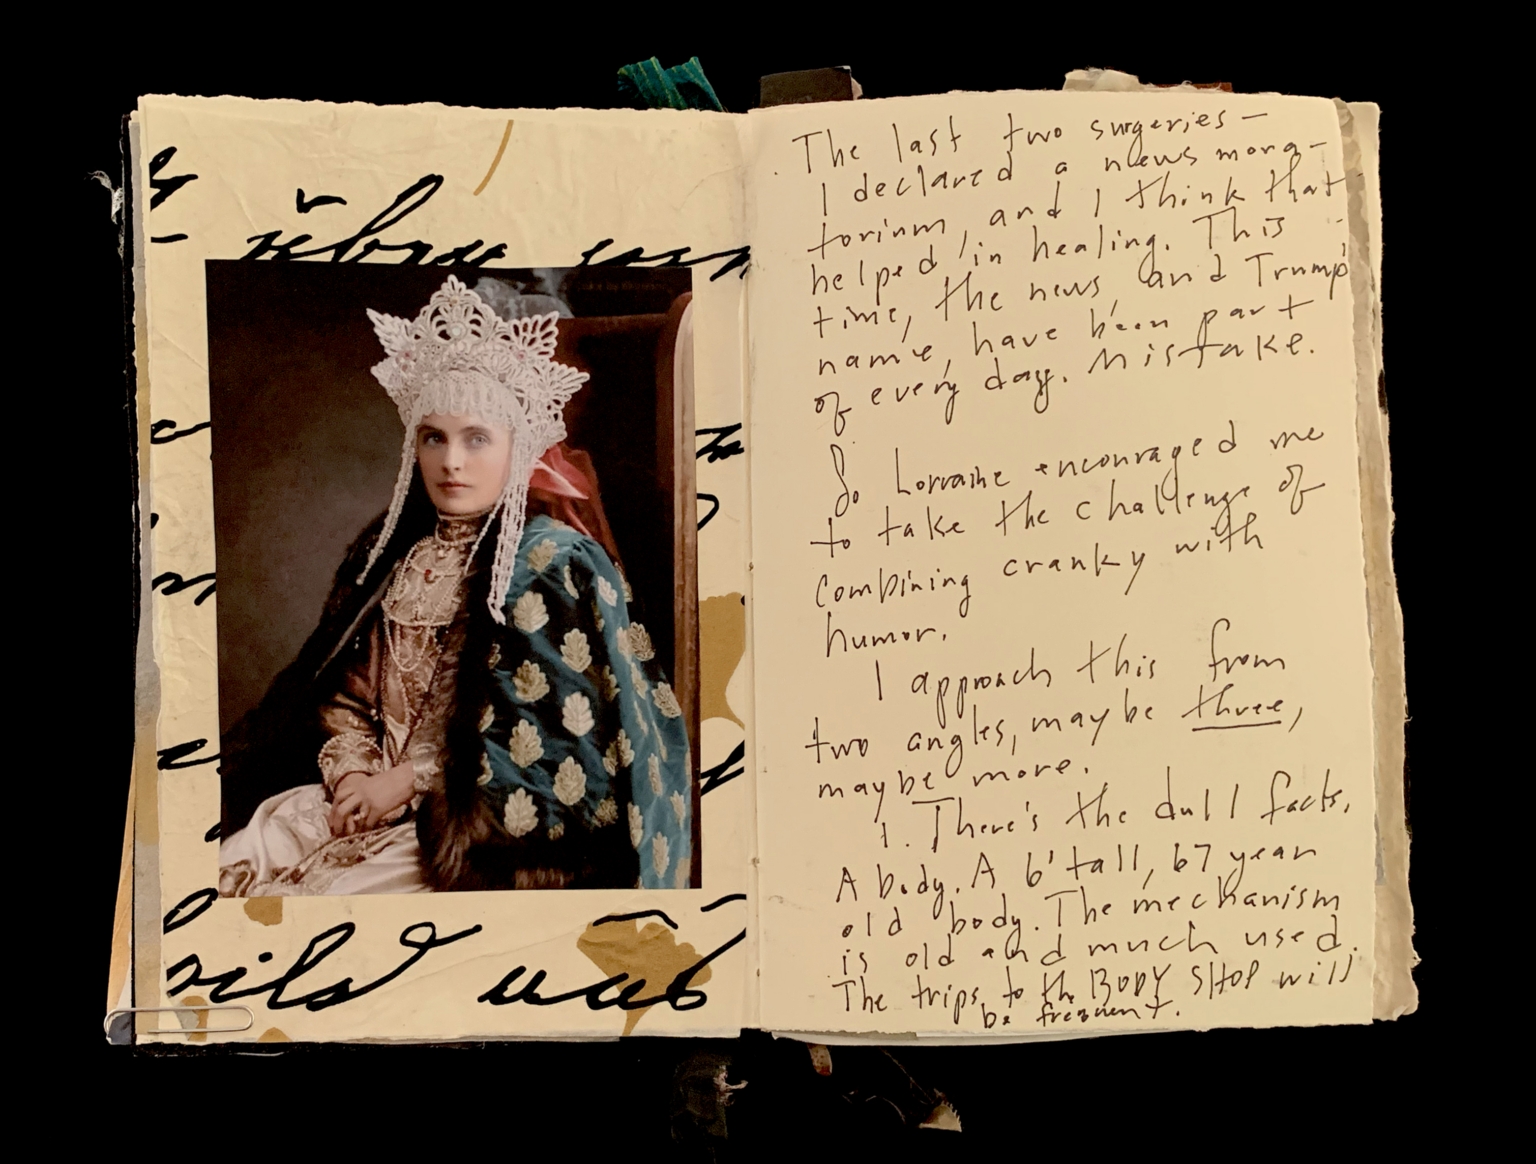 The last two surgeries —
I declared a news mora-
torium, and I think that
helped in healing. This
time, the news, and Trump
name, have been part
of every day. Mistake.
So Lorraine encouraged me
to take the challenge of
combining cranky with
humor.
I approach this from
two angles, maybe three,
maybe more.
1. There's the dull facts.
A body. A 6' tall, 67 year
old body. The mechanism
is old and much used.
The trips to the BODY SHOP will
be frequent.